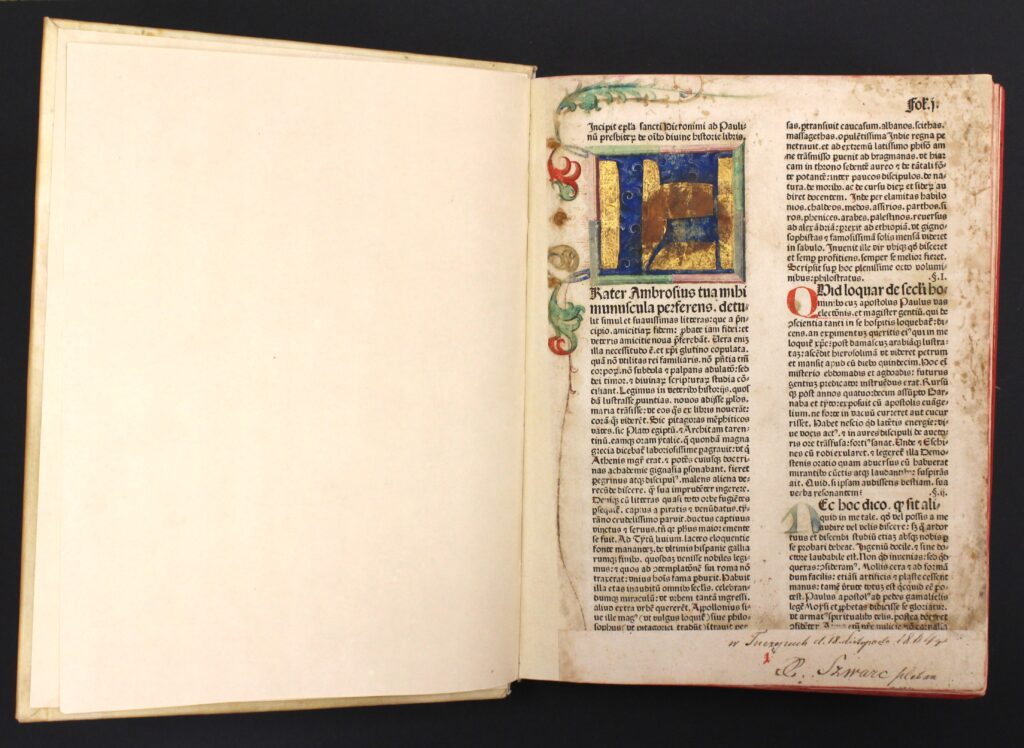 Fol. j.
Incipit epl̃a sancti Hieronimi ad Pauli-
nũ presbiteꝝ de oĩb9 diuine historie libris.
Rater Ambrosius tua mihi
munuscula perferens. detu-
lit simul et suauissimas litteras: que a prĩ-
cipio amicitiaꝝ fidem: ꝓbate iam fidei: et
veteris amicitie noua p̃ferebãt. Uera eniʒ
illa necessitudo ẽ. et xp̃i glutino copulata.
quã nõ vtilitas rei familiaris. nõ p̃ntia tm̃
corpoꝝ. nõ subdola ⁊ palpans adulatõ: sed
dei timor. ⁊ diuinaꝝ scripturaꝝ studia cõ-
ciliant. Legimus in veterib9 historijs. quos
dã lustrasse ꝓuintias. nouos adijsse pp̃los.
maria trãsisse: vt eos q̃s ex libris nouerãt:
corã q̃ viderẽt. Sic pitagoras mẽphiticos
vates. sic Plato egiptũ. ⁊ Architam taren-
tinũ. eamqꝫ oram ytalie. q̃ quondã magna
grecia dicebat̃ laboriosissime pagrauit: vt q̃
Athenis mgr̃ erat. ⁊ potẽs. cuiusqꝫ doctri-
nas achademie gignasia ꝑsonabant. fieret
pegrinus atqꝫ discipul9. malens aliena ve-
recũde discere. q̃ sua imprudẽter ingerere.
Deniqꝫ cũ litteras quasi toto orbe fugiẽtes
ꝑsequit̃. captus a piratis ⁊ venũdatus. ty-
rãno crudelissimo paruit. ductus captiuus
vinctus ⁊ seruus. tñ q̃ phus maior emente
se fuit. Ad Tytũ liuium. lacteo eloquentie
fonte mananteʒ. de vltimis hispanie gallia
rumqꝫ finib9. quosdaʒ venisse nobiles legi-
mus: ⁊ quos ad ꝯtemplatõnẽ sui roma nõ
traxerat: vnius hoĩs fama ꝑduxit. Habuit
illa etas inauditũ omnib9 seclis. celebran-
dumqꝫ miraculũ: vt vrbem tantã ingressi.
aliud extra vrbẽ quererẽt. Appollonius si-
ue ille mag9 (vt vulgus loquit̃) siue philo-
sophus (vt pitagorici tradũt) ĩtrauit per
sas. ꝑtransiuit caucasum. albanos. scithas.
massagethas. opulẽtissima Indie regna pe
netrauit. et ad extremũ latissimo phisõ am
ne trãsmisso ꝑuenit ad bragmanas. vt hiar
cam in throno sedentẽ aureo ⁊ de tãtali fõ-
te potantẽ: inter paucos discipulos. de na-
tura. de morib9. ac de cursu dieꝝ et sideꝝ au
diret docentem. Inde per elamitas babilo
nios. chaldeos. medos. assirios. parthos. si
ros. phenices. arabes. palestinos. reuersus
ad alexãdriã: ꝑrexit ad ethiopiã. vt gigno-
sophistas ⁊ famosissimã solis mensã videret
in sabulo. Inuenit ille vir vbiqꝫ qð disceret
et semꝑ proficiens. semper se melior fieret.
Scripsit suꝑ hoc plenissime octo volumi-
nibus: philostratus. .§.I.
QUid loquar de secl̃i ho-
minib9 cuʒ apostolus Paulus vas
electõnis. et magister gentiũ. qui de
ꝯscientia tanti in se hospitis loquebat̃: di-
cens. an exꝑimentum queritis ei9 qui in me
loquit̃ xp̃c: post damascuʒ arabiãqꝫ lustra-
taʒ: ascẽdit hierosolimã vt videret petrum
et mansit apud eũ dieb9 quindecim. Hoc em̃
misterio ebdomadis et agdoadis: futurus
gentiuʒ predicator instruẽdus erat. Rursũ
qꝫ post annos quatuordecim assũpto Bar-
naba et tyto: exposuit cũ apostolis euãge-
lium. ne forte in vacuũ curreret aut cucur
risset. Habet nescio qð latẽtis energie: vi-
ue vocis act9. ⁊ in aures discipuli de aucto
ris ore trãsfusa: forti9 sonat. Unde ⁊ Eschi-
nes cũ rodi exularet. ⁊ legeret̃ illa Demo-
stenis oratio quam aduersus eũ habuerat
mirantib9 cũctis atqꝫ laudantib9 suspirãs
ait. Quid. si ipsam audissetis bestiam. sua
verba resonantem: .§.ij.
NEc hoc dico. q̃ sit ali-
quid in me tale. qð vel possis a me
audire vel velis discere: sʒ q̃ ardor
tuus et discendi studiũ etiaʒ absqꝫ nobis ꝑ
se probari debeat. Ingeniũ docile. ⁊ sine do-
ctore laudabile est. Non qð inuenias: sed qð
queras: ꝯsideram9. Mollis cera ⁊ ad forman
dum facilis: etiãsi artificis ⁊ plaste cessent
manus: tamẽ v̾tute totuʒ est q̃cquid eẽ po-
test. Paulus apostol9 ad pedes gamalielis
legẽ Moysi et ꝓphetas didicisse se gloriatur.
vt armat9 spiritualib9 telis. postea doceret
w Tuczępach d. 18 listopada 1844 r
1
P. Szwarc pleban